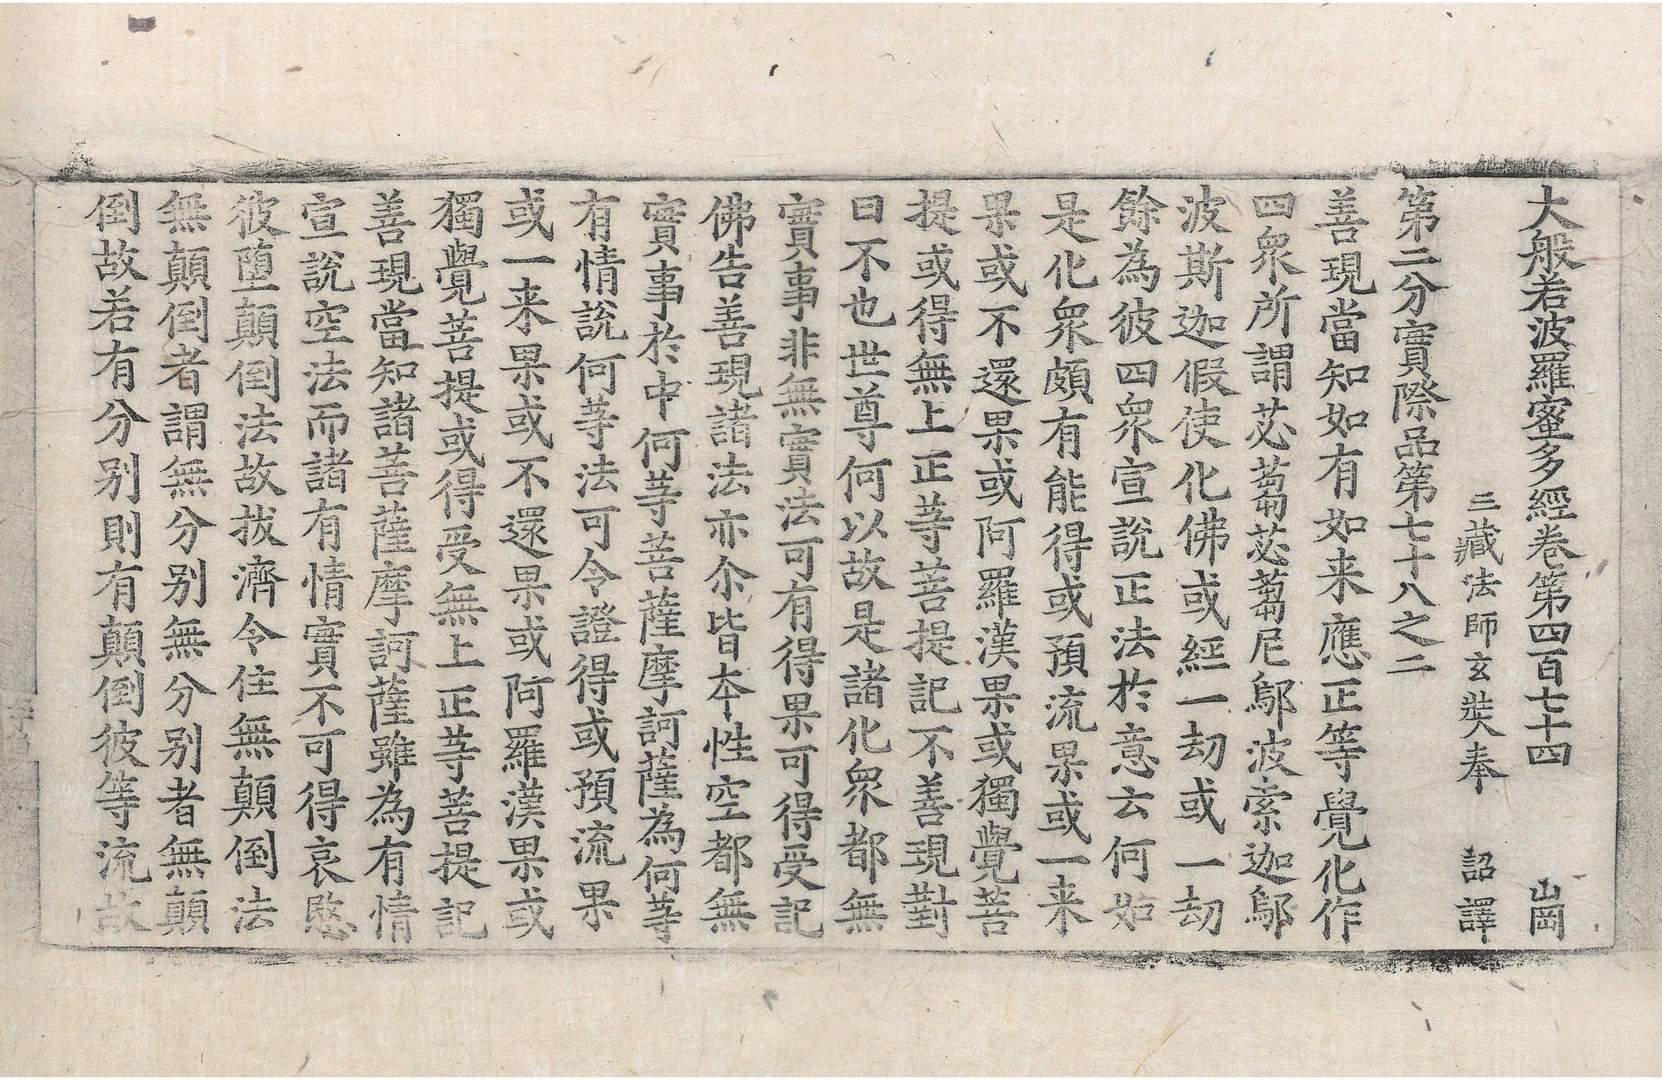 大般若波羅蜜多經卷第四百七十四 崗
三藏法師玄奘奉 詔譯
第二分實際品第七十八之二
善現當知如有如来應正等覺化作
四衆所謂苾蒭苾蒭尼鄔波索迦鄔
波斯迦假使化佛或經一劫或一劫
餘為彼四衆宣說正法於意云何如
是化衆頗有能得或預流果或一来
果或不還果或阿羅漢果或獨覺菩
提或得無上正等菩提記不善現對
曰不也世尊何以故是諸化衆都無
實事非無實法可有得果可得受記
佛告善現諸法亦尒皆夲性空都無
實事於中何等菩薩摩訶薩為何等
有情說何等法可令證得或預流果
或一来果或不還果或阿羅漢果或
獨覺菩提或得受無上正等菩提記
善現當知諸菩薩摩訶薩雖為有情
宣說空法而諸有情實不可得哀愍
彼墮顛倒法故拔濟令住無顛倒法
無顛倒者謂無分別無分別者無顛
倒故若有分別則有顛倒彼等流故